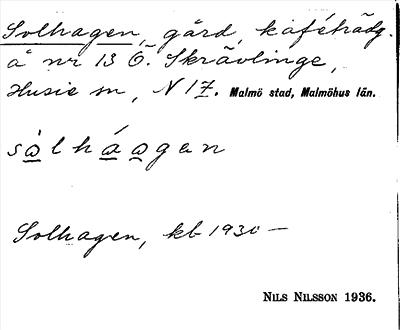 Solhagen, gård, kaféträdg.
å nr 13 Ö. Skrävlinge,
Husie sn, N 17. Malmö stad, Malmöhus län.
sòlháogen
Solhagen, kb 1930 —
NILS NILSSON 1936.